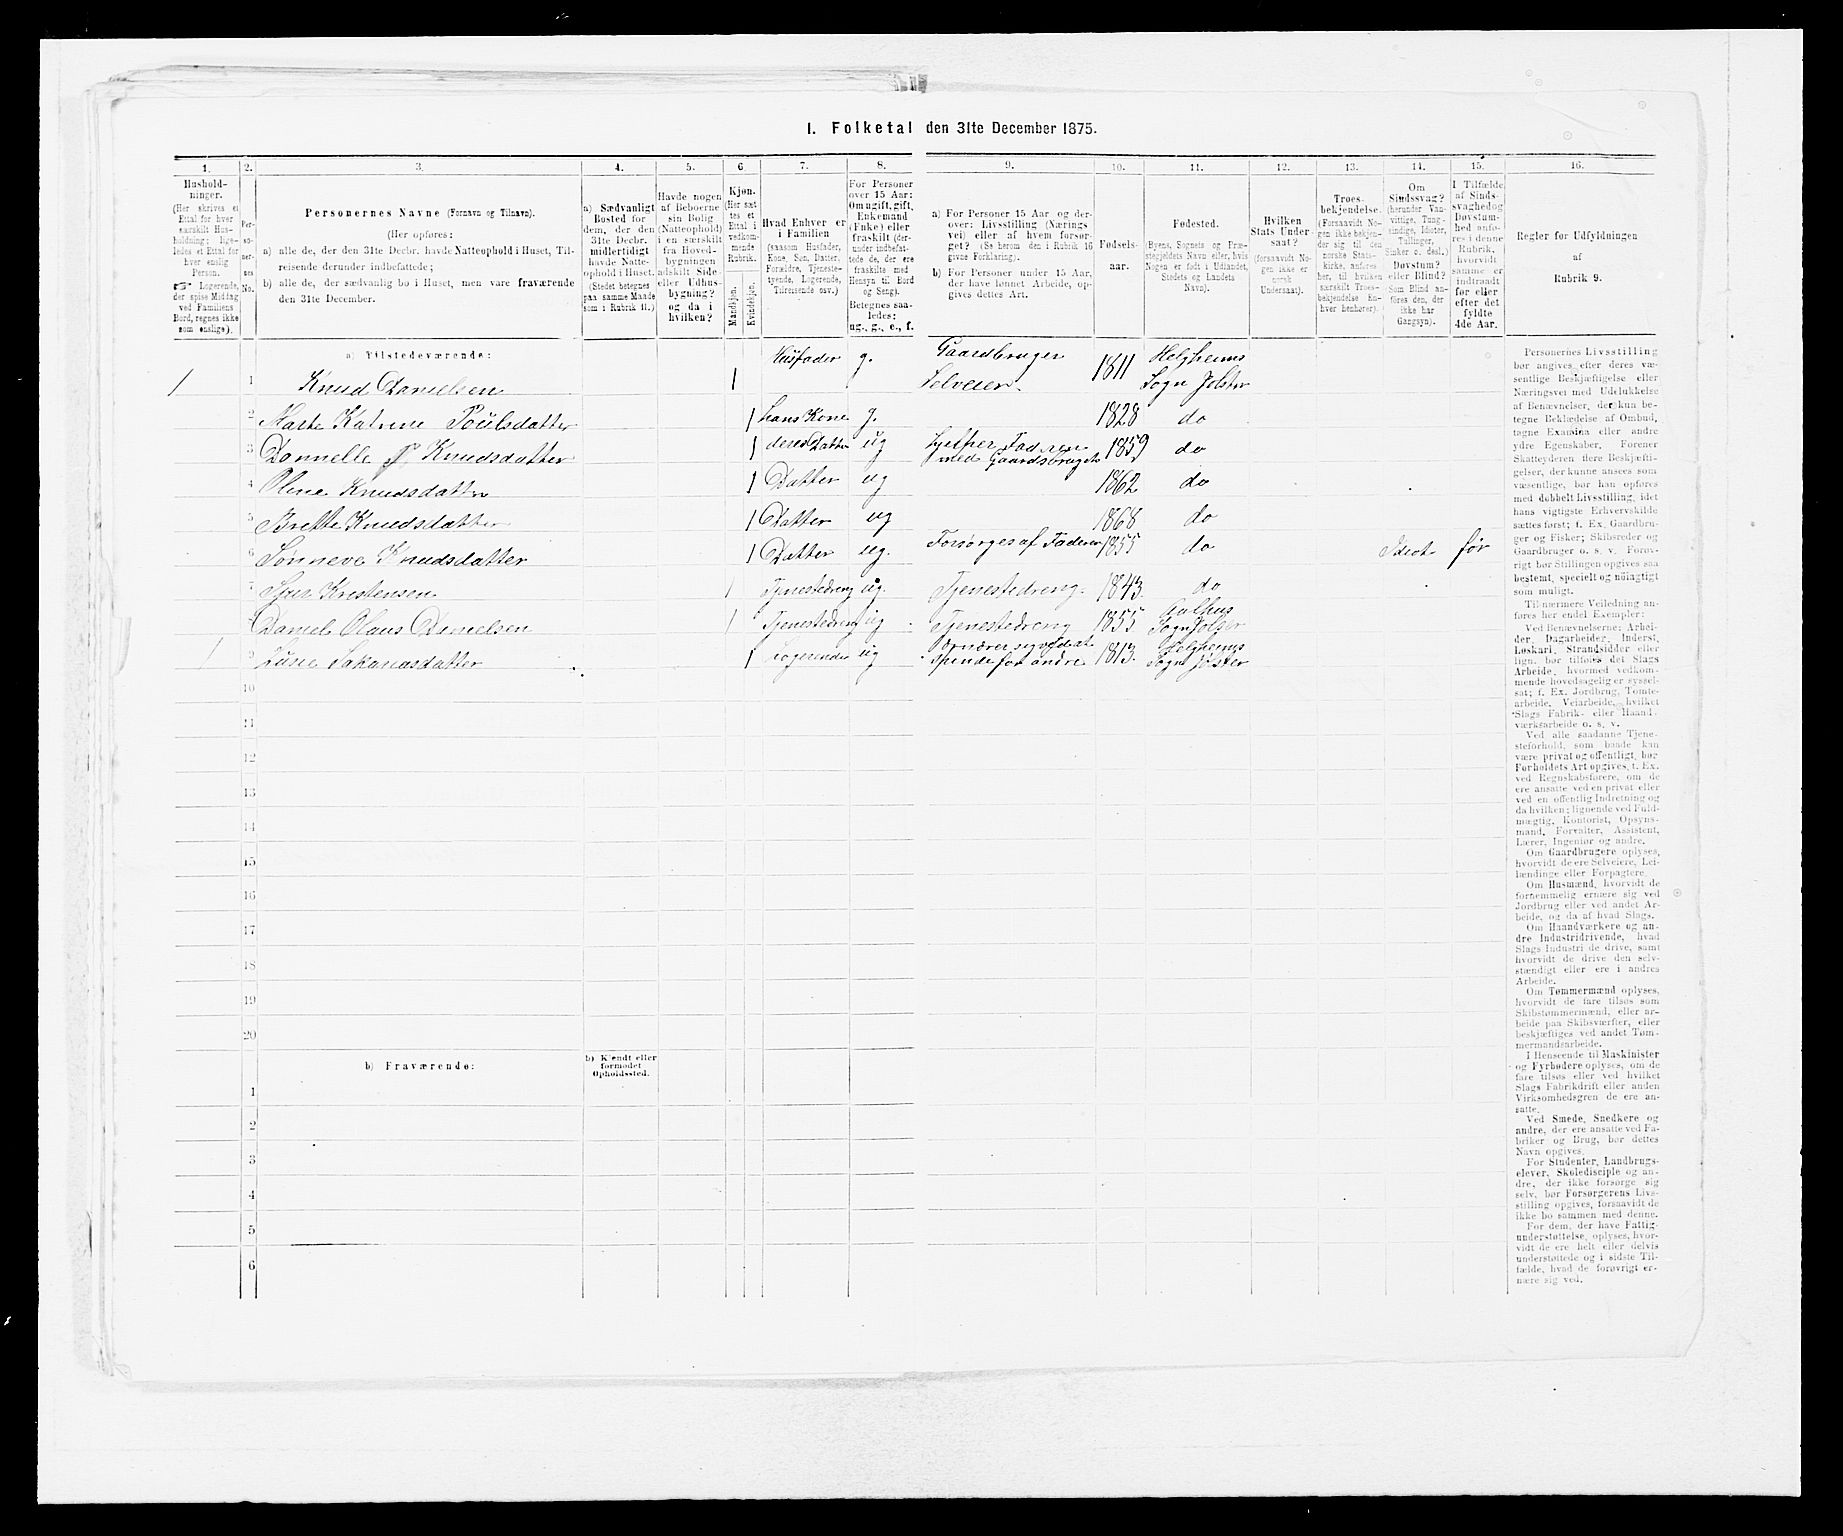 1. Folketal den 31te December 1875.
1. 2. 3. 4. 5. 6. 7. 8. 9. 10. 11. 12. 13. 14. 15. 16.
Hushold-
ninger.
(Her skrives et
Ettal for hver
særskilt Hus-
holdning; lige-
ledes et Ettal for
hver enslig
Person.
☞ Logerende,
der spise Middag
ved Familiens
Bord, regnes ikke
som enslige).
Per-
so-
ner-
nes
No.
Personernes Navne (Fornavn og Tilnavn).
(Her opføres:
a) alle de, der den 31te Decbr. havde Natteophold i Huset, Til-
reisende derunder indbefattede;
b) alle de, der sædvanlig bo i Huset, men vare fraværende
den 31te December.
a) Sædvanligt
Bosted for
dem, der den
31te Decbr.
midlertidigt
havde Natte-
ophold i Huset.
(Stedet betegnes
paa samme Maade
som i Rubrik 11.)
Havde nogen
af Beboerne
sin Bolig
(Natteophold)
i en særskilt
fra Hoved-
bygningen
adskilt Side-
eller Udhus-
bygning?
og da i
hvilken?
Kjøn.
(Her sæt-
tes et
Ettal i
vedkom-
mende
Rubrik.
Mandkjøn.
Kvindekjøn.
Hvad Enhver er
i Familien
(saasom Husfader,
Kone, Søn, Datter,
Forældre, Tjeneste-
tyende, Logerende,
Tilreisende osv.)
For Personer
over 15 Aar:
Om ugift, gift,
Enkemand
(Enke) eller
fraskilt (der-
under indbefat-
tede de, der ere
fraskilte med
Hensyn til Bord
og Seng).
Betegnes saa-
ledes:
ug., g., e., f.
a) For Personer 15 Aar og der-
over: Livsstilling (Nærings-
vei) eller af hvem forsør-
get? (Se herom den i Rubrik 16
givne Forklaring).
b) For Personer under 15 Aar,
der have lønnet Arbeide, op-
gives dettes Art.
Fødsels-
aar.
Fødested.
(Byens, Sognets og Præ-
stegjeldets Navn eller, hvis
Nogen er født i Udlandet,
Stedets og Landets
Navn).
Hvilken
Stats Under-
saat?
(forsaavidt No-
gen ikke er
norsk
Undersaat).
Troes-
bekjendelse.
(Forsaavidt No-
gen ikke bekjen-
der sig til den
norske Stats-
kirke, anføres
her, til hvilken
særskilt Troes-
bekjendelse En-
hver henhører).
Om
Sindssvag?
(herunder Van-
vittige, Tung-
sindige, Idioter,
Tullinger,
Sinker o. desl.)
Døvstum?
eller Blind?
(Som Blind an-
føres den, der
ikke har
Gangsyn).
I Tilfælde
af Sinds-
svaghed og
Døvstum-
hed anfø-
res i denne
Rubrik,
hvorvidt
samme er
indtraadt
før eller
efter det
fyldte
4de Aar.
Regler for Udfyldningen
af
Rubrik 9.
a) Tilstedeværende:
1 1 Knud Danielsen 1 Husfader g. Gaardbruger Selveier. 1811 Helghems Sogn Jølster
2 Marte Katrine Poulsdatter 1 hans Kone g. 1828 do
3 Dannelle P. Knudsdatter 1 deres Datter ug hjelper Faderen med Gaardsbruget 1859 do
4 Oline Knudsdatter 1 Datter ug 1862 do
5 Brette Knudsdatter 1 Datter ug 1868 do
6 Sønneve Knudsdatter 1 Datter ug. Forsørges af Faderen 1855 do Idiot før
7 Kristensen 1 Tjenestedreng ug. Tjenestedreng. 1843. do
Daniel Olaus Danielsen 1 Tjenestedreng ug Tjenestedreng 1855 Aalhus Sogn Jølster
1 9 Sakariasdatter 1 Logerende ug ernærer sig ved at spinde for andre 1813. Helghems Sogn Jølster
10
11
12
13
14
15
16
17
18
19
20
b) Fraværende:
b) Kjendt eller
formodet
Opholdssted.
1
2
3
4
5
6
Personernes Livsstilling
bør angives efter deres væ-
sentlige Beskjæftigelse eller
Næringsvei med Udelukkelse
af Benævnelser, der kun be-
tegne Beklædelse af Ombud,
tagne Examina eller andre
ydre Egenskaber. Forener
Skatteyderen flere Beskjæfti-
gelser, der kunne ansees som
væsentlige, bør han opføres
med dobbelt Livsstilling, idet
hans vigtigste Erhvervskilde
sættes først; f. Ex. Gaardbru-
ger og Fisker; Skibsreder og
Gaardbruger o. s. v. Forøv-
rigt bør Stillingen opgives saa
bestemt, specielt og nøiagtigt
som muligt.
Til nærmere Veiledning an-
føres her endel Exempler:
Ved Benævnelserne: Arbei-
der, Dagarbeider, Inderst,
Løskarl, Strandsidder eller
lign. bør tilføies det Slags
Arbeide, hvormed vedkom-
mende hovedsagelig er syssel-
sat; f. Ex. Jordbrug, Tomte-
arbeide, Veiarbeide, hvilket
Slags Fabrik- eller Haand-
værksarbeide o. s. v.
Ved alle saadanne Tjene-
steforhold, som baade kan
være privat og offentligt, bør
Forholdets Art opgives, f. Ex.
ved Regnskabsførere, om de
ere ansatte ved en privat eller
ved en offentlig Indretning og
da hvilken; lignende ved Fuld-
mægtig, Kontorist, Opsyns-
mand, Forvalter, Assistent,
Lærer, Ingeniør og andre.
Om Gaardbrugere oplyses,
hvorvidt de ere Selveiere, Lei-
lændinge eller Forpagtere.
Om Husmænd, hvorvidt de
fornemmelig ernære sig ved
Jordbrug eller ved andet Ar-
beide, og da af hvad Slags.
Om Haandværkere og an-
dre Industridrivende, hvad
Slags Industri de drive, samt
hvorvidt de drive den selv-
stændigt eller ere i andres
Arbeide.
Om Tømmermænd oplyses,
hvorvidt de fare tilsøs som
Skibstømmermænd, eller ar-
beide paa Skibsværfter, eller
beskjæftiges ved andet Tøm-
mermandsarbeide.
I Henseende til Maskinister
og Fyrbødere oplyses, om de
fare tilsøs eller ved hvilket
Slags Fabrikdrift eller anden
Virksomhedsgren de ere an-
satte.
Ved Smede, Snedkere og
andre, der ere ansatte ved Fa-
briker og Brug, bør dettes
Navn opgives.
For Studenter, Landbrugs-
elever, Skoledisciple og an-
dre, der ikke forsørge sig
selv, bør Forsørgerens Livs-
stilling opgives, forsaavidt de
ikke bo sammen med denne.
For dem, der have Fattig-
understøttelse, oplyses, hvor-
vidt de ere helt eller delvis
understøttede og i sidste Til-
fælde, hvad de forøvrigt er-
nære sig ved.